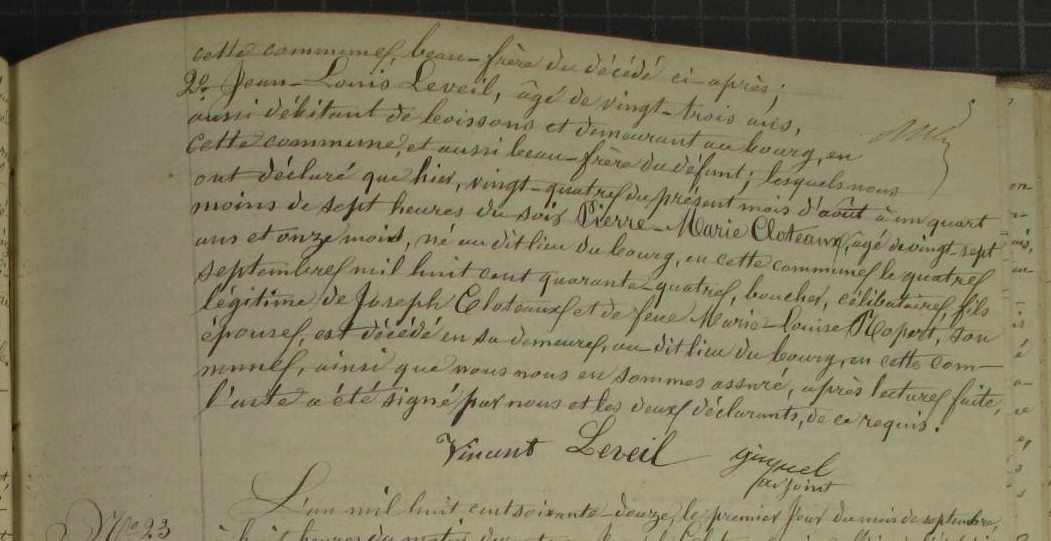 cette commune, beau-frère du décédé ci-après;
2º Jean-Louis Leveil, âgé de vingt-trois ans,
aussi débitant de boissons et demeurant au bourg, en
cette commune, et aussi beau-frère du défunt; lesquels nous
ont déclaré que hier, vingt-quatre du présent mois d'août à un quart
moins de sept heures du soir Pierre-Marie Cloteaux, âgé de vingt-sept
ans et onze mois, né au dit lieu du bourg, en cette commune le quatre
septembre mil huit cent quarante-quatre, boucher, célibataire, fils
légitime de Joseph Cloteaux et de feue Marie-Louise Roport, son
épouse, est décédé en sa demeure, au dit lieu du bourg, en cette com-
mune, ainsi que nous nous en sommes assuré, après lecture faite,
l'acte a été signé par nous et les deux déclarants, de ce requis.
Vincent Leveil ginguel
adjoint
Nº 23
L'an mil huit cent soixante-douze, le premier jour du mois de septembre,
à huit heures du matin